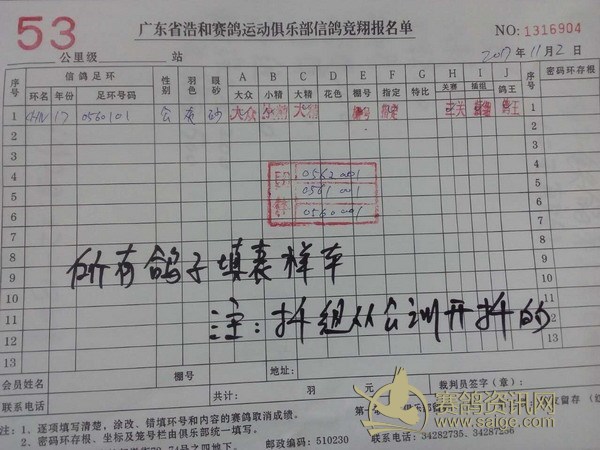 53
广东省浩和赛鸽运动俱乐部信鸽竞翔报名单
NO: 1316904
公里级 站
2017年11月2日
序号 信鸽足环 性别 羽色 眼砂 A B C D E F G H I J 序号 密码环存根
环名 年份 足环号码 大众 小精 大精 花色 棚号 指定 特比 关赛 插组 鸽王
1 CHN 17 0560101 砂 大众 大精 棚号 鸽王 1
2 2
3 3
4 0562001 4
5 0561001 5
6 0560001 6
7
8
所有鸽子填表样车
9
10
11
注:抖组从会训开抖的
12
13 13
会员姓名 棚号 地址:
联系电话 共计: 羽 元 裁判员签字(章):
注:1、逐项填写清楚,涂改、错填环号和内容的赛鸽取消成绩。
2、密码环存根、坐标及笼号栏由俱乐部统一填写。
邮政编码:510230 联系电话:34282735、34287256
赛鸽资讯网
www.saigg.com